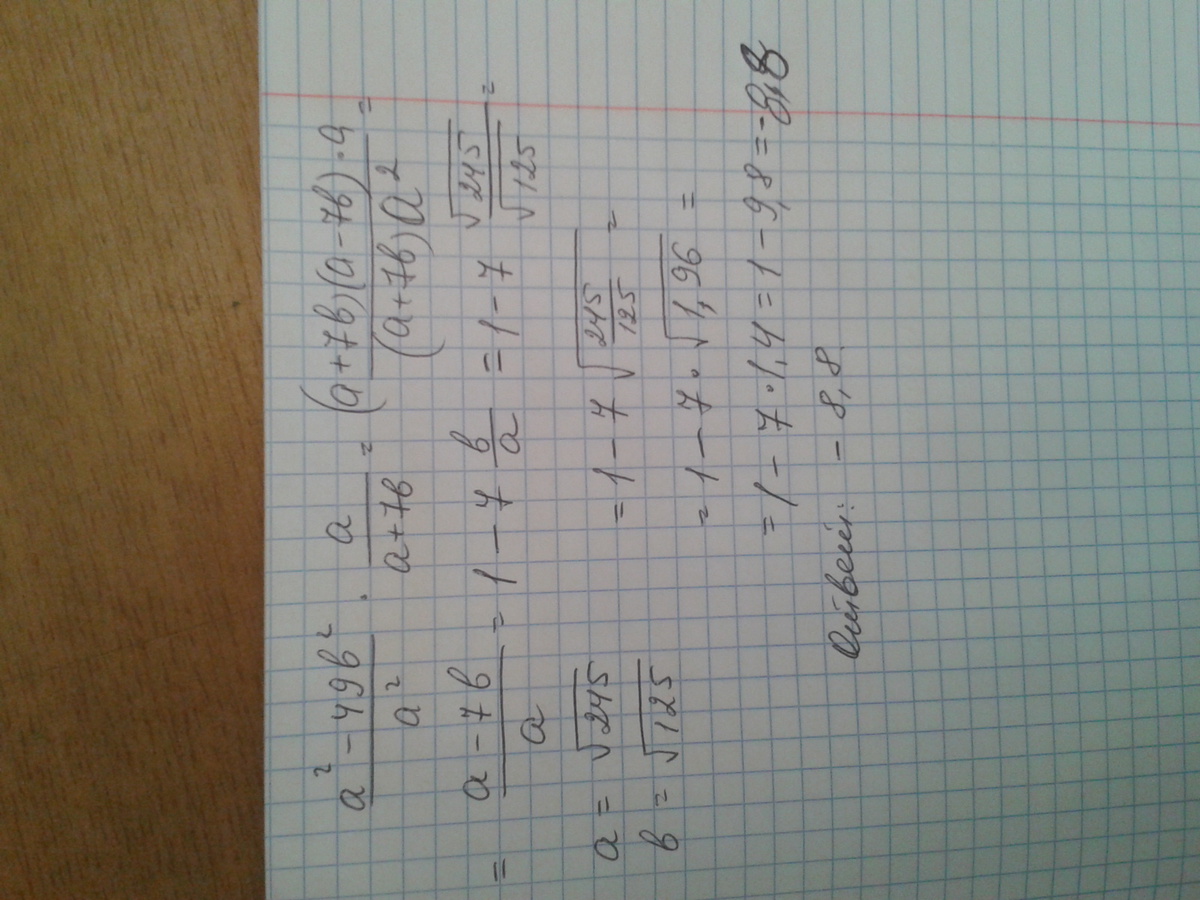 (a² - 49b²)/a² · a/(a+7b) = ((a+7b)(a-7b)·a)/((a+7b)a²) =
= (a-7b)/a = 1 - 7 b/a = 1 - 7 √245/√125 =
a = √245 = 1 - 7 √(245/125) =
b = √125 = 1 - 7 · √1,96 =
= 1 - 7 · 1,4 = 1 - 9,8 = -8,8
Ответ: - 8,8.